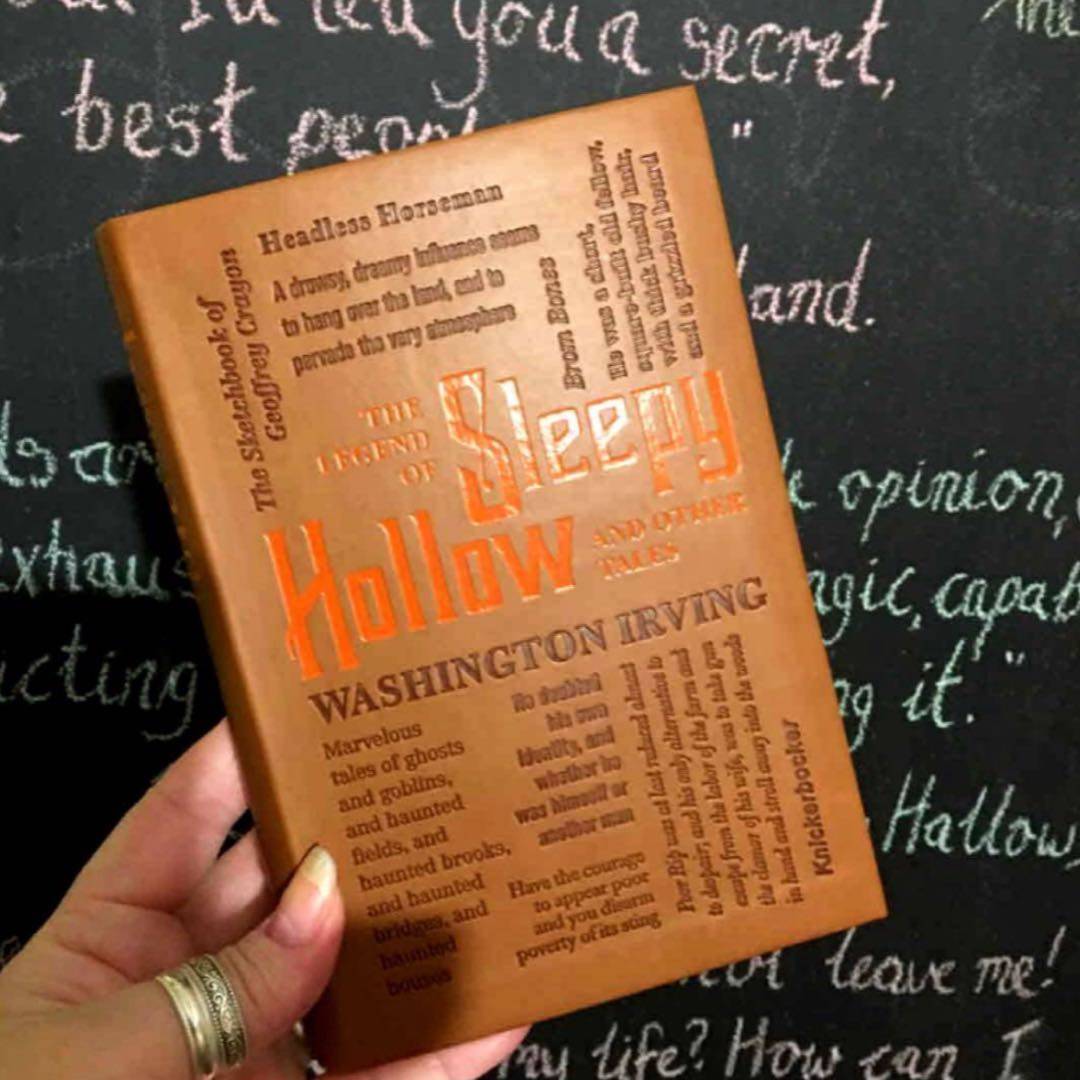 I'll tell you a secret,
best
"
The Sketchbook of
Geoffrey Crayon
Headless Horseman
A drowsy, dreamy influence seems
to hang over the land, and to
pervade the very atmosphere
Brom Bones
He was a short,
square-built old fellow,
with thick bushy hair,
and a grizzled beard
THE
LEGEND
OF
Sleepy
Hollow
AND OTHER
TALES
WASHINGTON IRVING
Marvelous
tales of ghosts
and goblins,
and haunted
fields, and
haunted brooks,
and haunted
bridges, and
haunted
houses
He doubted
his own
identity, and
whether he
was himself or
another man
Have the courage
to appear poor
and you disarm
poverty of its sting
Poor Rip was at last reduced almost
to despair; and his only alternative, to
escape from the labor of the farm and
the clamor of his wife, was to take gun
in hand and stroll away into the woods
Knickerbocker
and.
opinion,
agic, capab
it."
exhaus
icting
Hallows
leave me!
my life? How can I